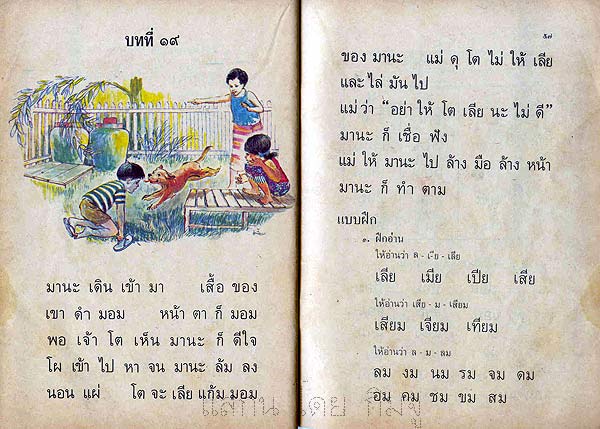 บทที่ ๑๙
มานะ เดิน เข้า มา เสื้อ ของ
เขา ดำ มอม หน้า ตา ก็ มอม
พอ เจ้า โต เห็น มานะ ก็ ดีใจ
โผ เข้า ไป หา จน มานะ ล้ม ลง
นอน แผ่ โต จะ เลีย แก้ม มอม
๕๗
ของ มานะ แม่ ดุ โต ไม่ ให้ เลีย
และ ไล่ มัน ไป
แม่ ว่า “อย่า ให้ โต เลีย นะ ไม่ ดี”
มานะ ก็ เชื่อ ฟัง
แม่ ให้ มานะ ไป ล้าง มือ ล้าง หน้า
มานะ ก็ ทำ ตาม
แบบฝึก
๑. ฝึกอ่าน
ให้อ่านว่า ล - เ-ีย - เลีย
เลีย เมีย เปีย เสีย
ให้อ่านว่า เสีย - ม - เสียม
เสียม เจียม เทียม
ให้อ่านว่า ล - ม - ลม
ลม งม นม รม จม ดม
อม คม ชม ขม สม
สแกน โดย คิมจู